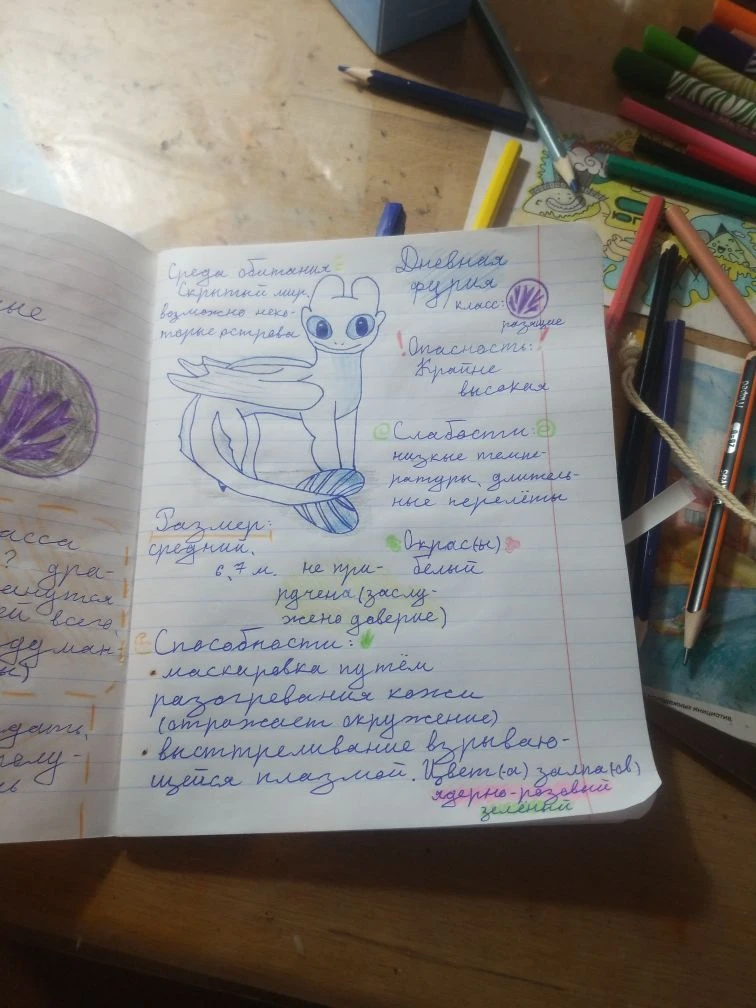 ные
асса
? дра-
ей всего,
думан-
Среда обитания:
Скрытый мир,
возможно неко-
торые острова
Дневная
фурия
класс:
разящие
! Опасность: !
Крайне
высокая
Слабости:
низкие темпе-
ратуры, длитель-
ные перелёты
Размер:
средний.
6,7 м.
Окрас(ы)
белый
не при-
рдчена (заслу-
жено доверие)
Способности:
• маскировка путём
разогревания кожи
(отражает окружение)
• высттреливание взрываю-
щейся плазмой. Цвет(-а) залпа(-ов)
ядерно-розовый
зелёный